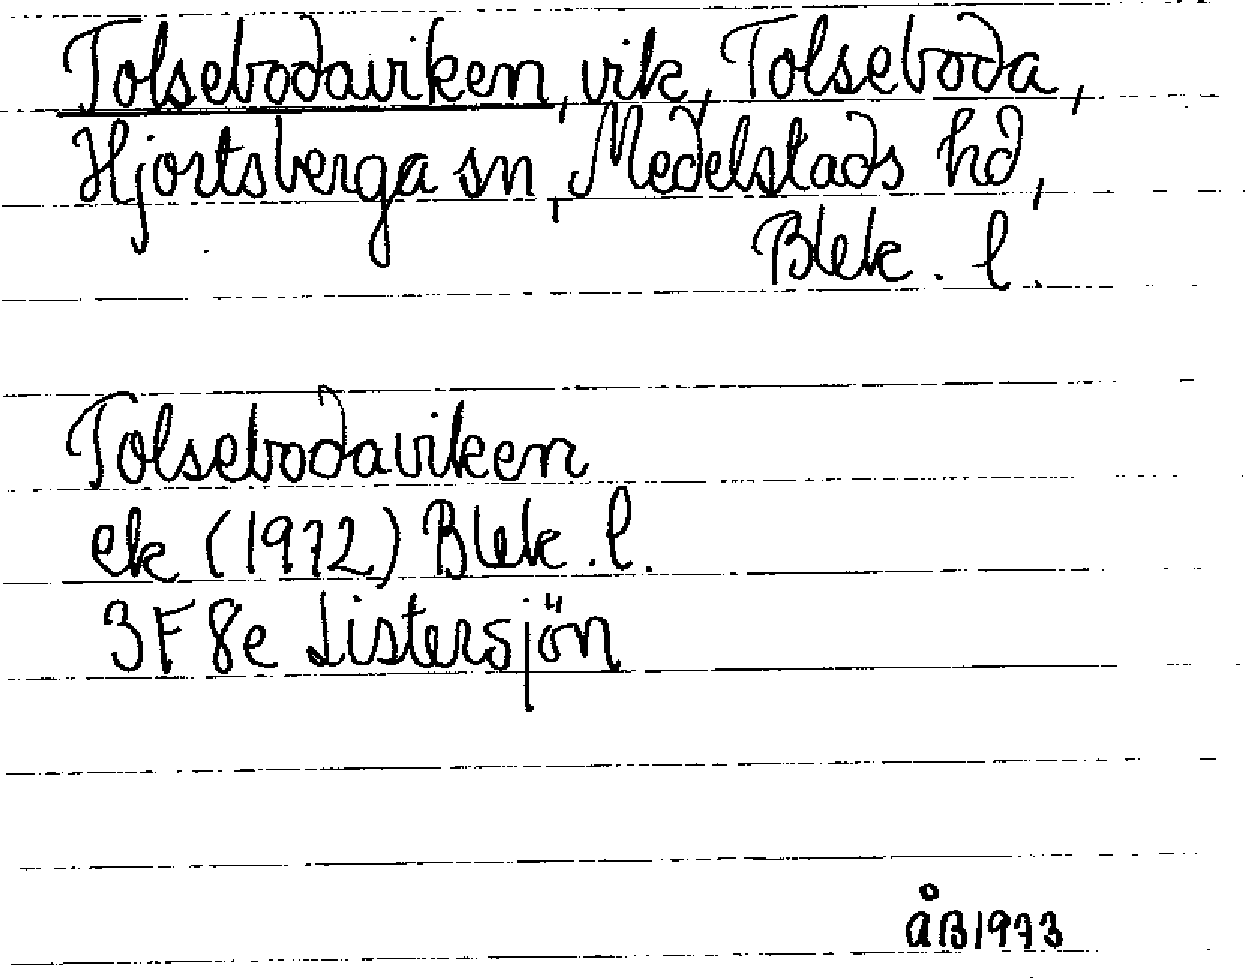 Tolsebodaviken, vik, Tolseboda,
Hjortsberga sn, Medelstads hd,
Blek. l.
Tolsebodaviken
ek (1972) Blek. l.
3F 8e Listersjön
ÅB 1973